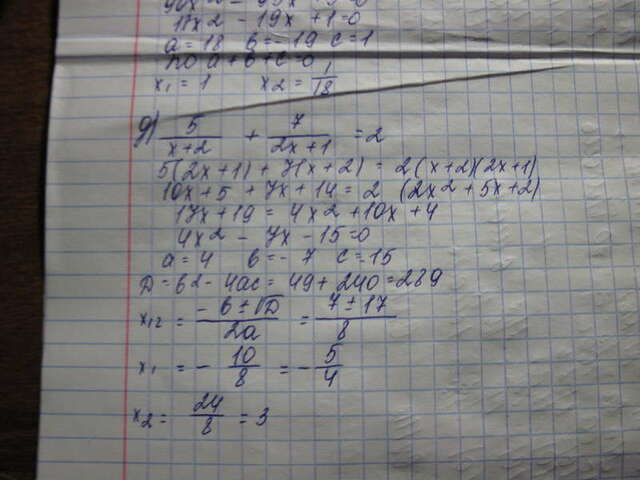 18x2 - 19x + 1=0
a = 18 b = - 19 c = 1
по a + b + c = 0
x1 = 1 x2 = 1/18
д) 5/(x+2) + 7/(2x+1) = 2
5(2x+1) + 7(x+2) = 2(x+2)(2x+1)
10x+5 + 7x+14 = 2 (2x2 + 5x+2)
17x+19 = 4x2 +10x +4
4x2 - 7x -15=0
a = 4 b = - 7 c = -15
D = b2 - 4ac = 49+ 240 = 289
x12 = (- b ± √D)/2a = (7 ± 17)/8
x1 = - 10/8 = - 5/4
x2 = 24/8 = 3